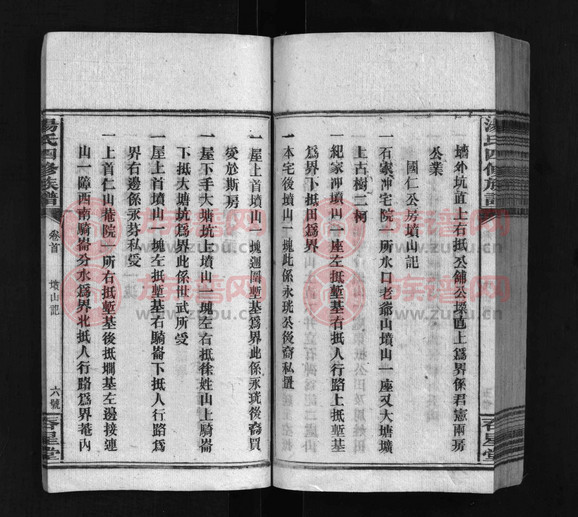 墻外坑直上右抵公鋪公業直上爲界係君憲兩房
公業
國仁公房墳山記
一石家冲宅院一所水口老爺山墳山一座又大塘壙
上古樹二柯
一紀家冲墳山一座左抵塹基右抵人行路上抵塹基
爲界下抵田爲界
一本宅後墳山一塊此係永珖公後裔私置
一屋上首墳山一塊週圍塹基爲界此係永珖後裔買
受於斯房
一屋下手大塘坑上墳山一塊左右抵徐姓山上騎崙
下抵大塘坑爲界此係世武所受
一屋上首墳山一塊左抵塹基右騎崙下抵人行路爲
界右邊係永芬私受
一上首仁山菴院一所右抵塹基後抵壕基左邊接連
山一障西南騎崙分水爲界北抵人行路爲界菴內
湯氏四修族譜
卷首
墳山記
六號
湯氏四修族譜
族譜网
www.zupu.cn